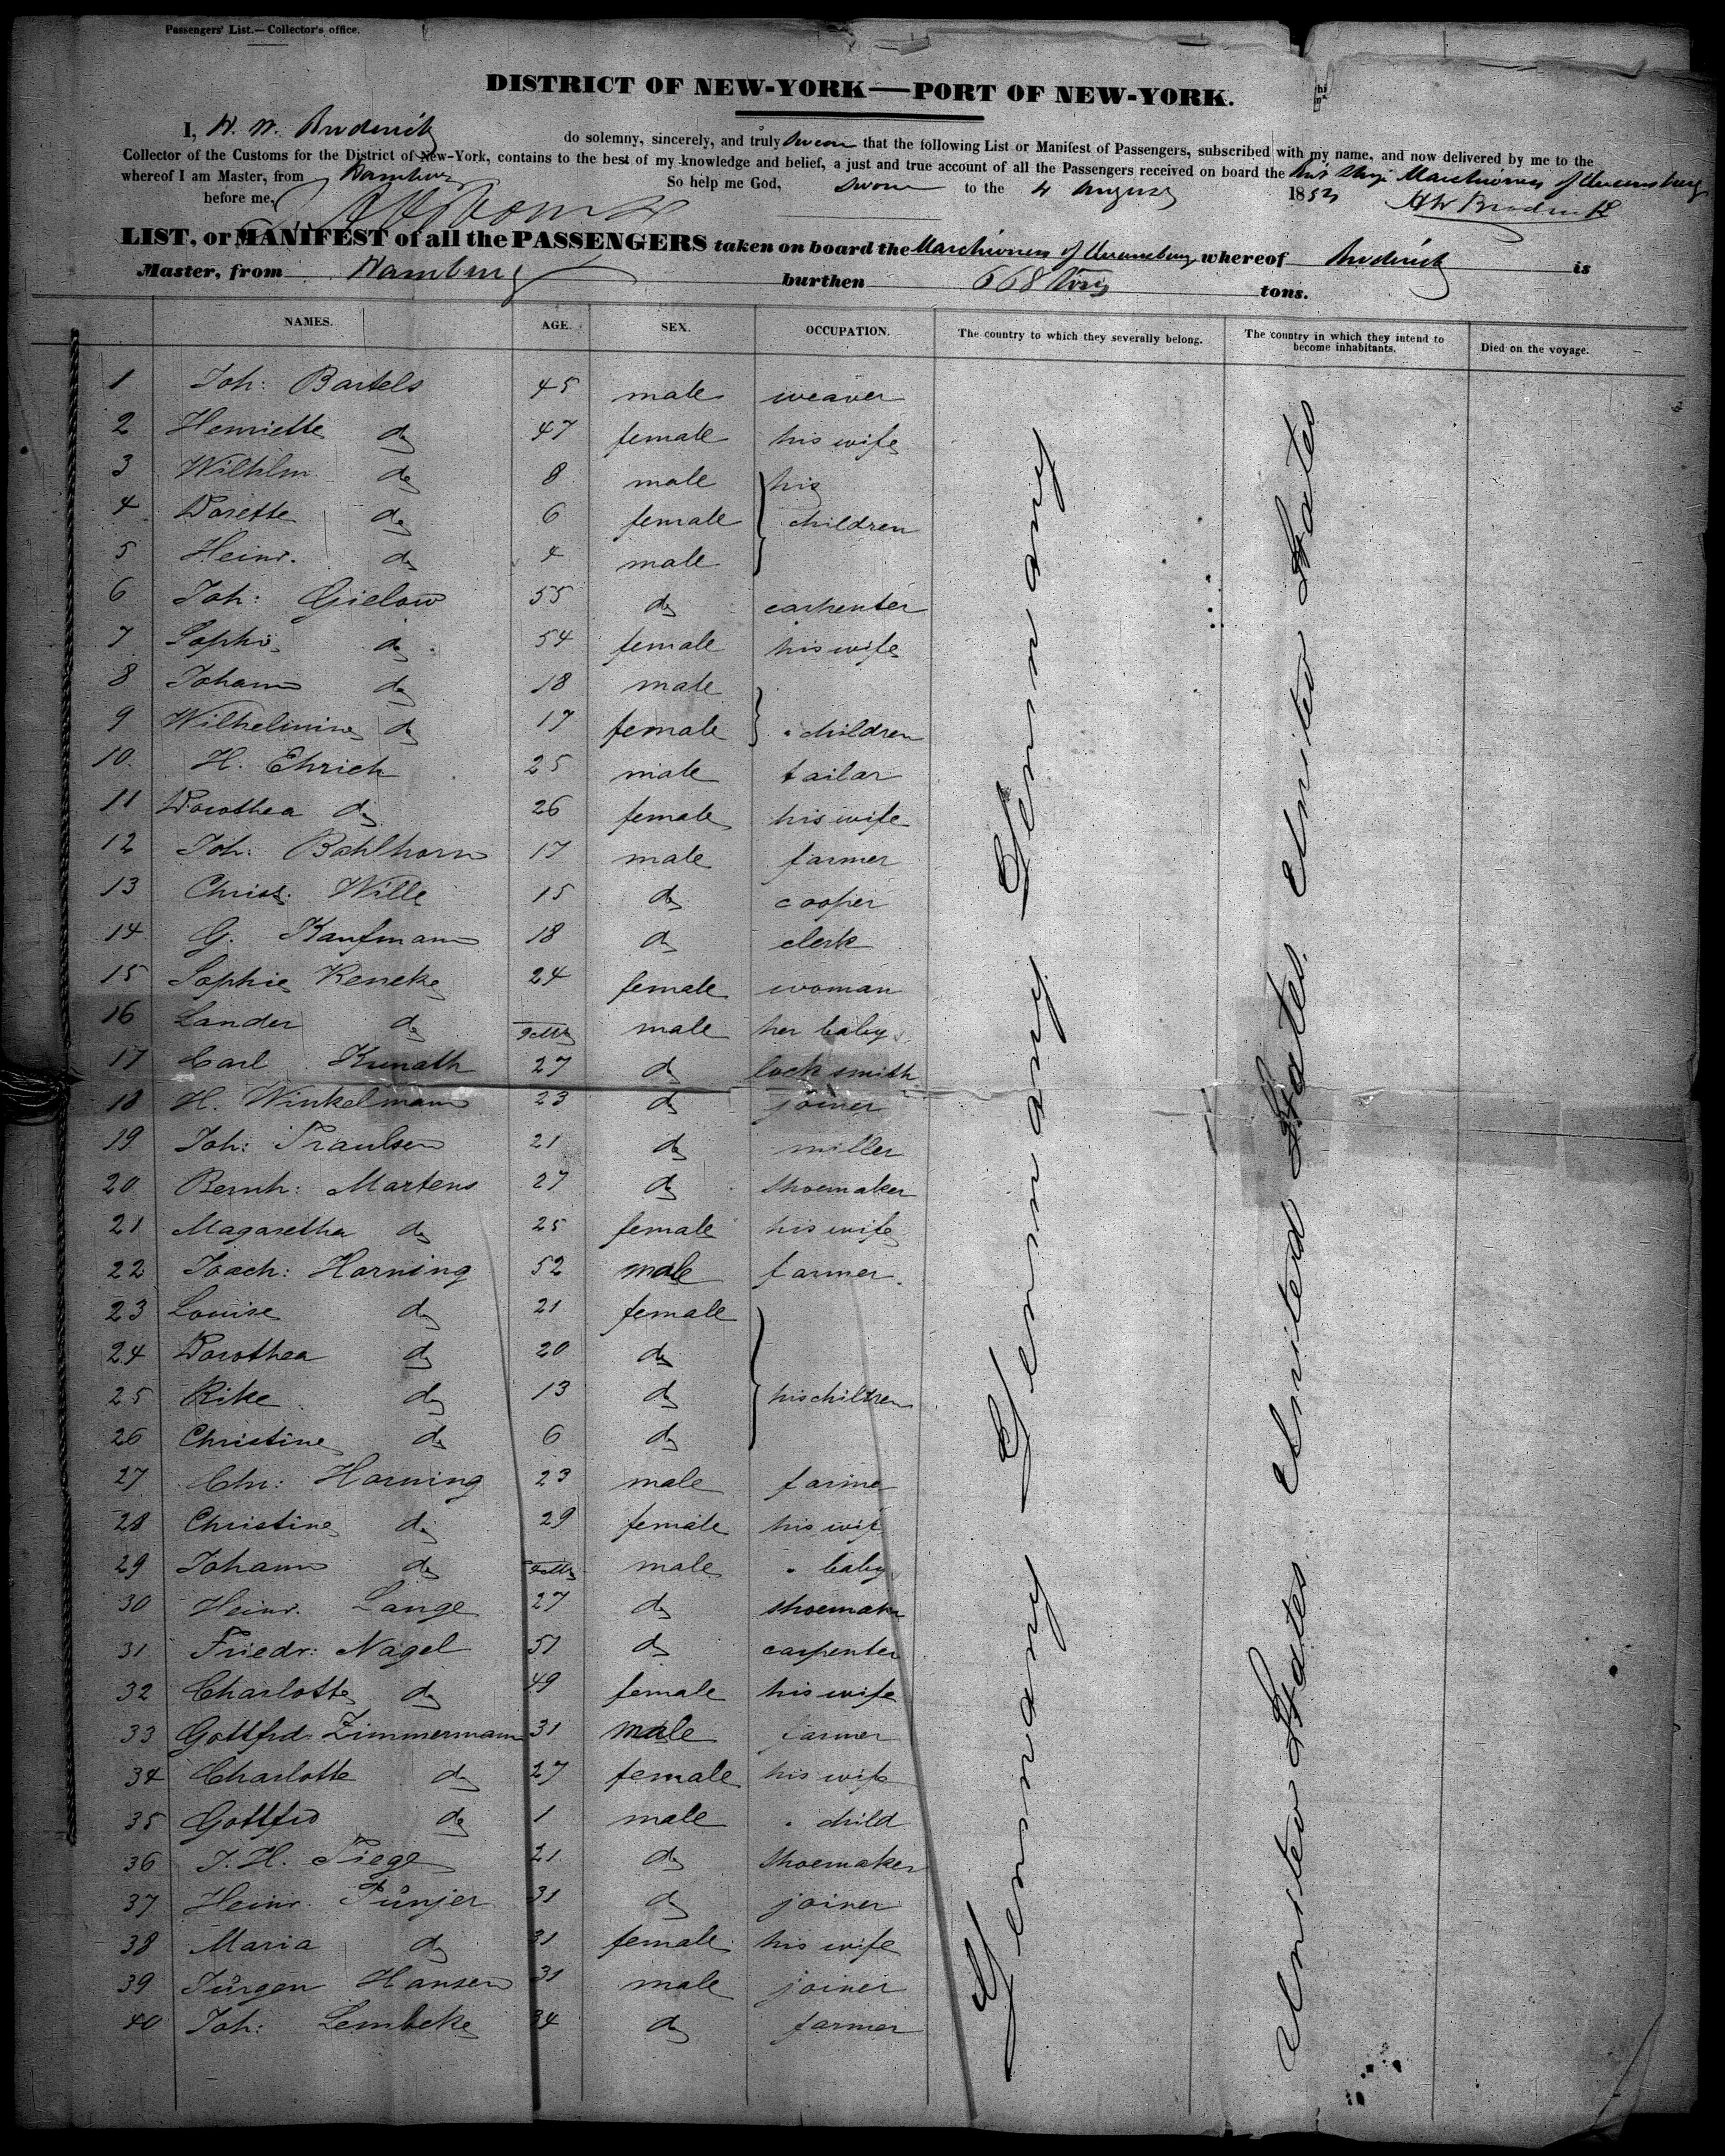 Passengers' List.—Collector's office.
DISTRICT OF NEW-YORK—PORT OF NEW-YORK.
I, H. W. Broderick do solemny, sincerely, and truly swear that the following List or Manifest of Passengers, subscribed with my name, and now delivered by me to the
Collector of the Customs for the District of New-York, contains to the best of my knowledge and belief, a just and true account of all the Passengers received on board the Marchioness of Queensbury
whereof I am Master, from Hamburg So help me God, sworn to the 4 August 185
before me, HW Broderick
LIST, or MANIFEST of all the PASSENGERS taken on board the Marchioness of Queensbury whereof Broderick is
Master, from Hamburg burthen 668 tons.
NAMES. AGE. SEX. OCCUPATION. The country to which they severally belong. The country in which they intend to become inhabitants. Died on the voyage.
1 Joh: Bartels 45 male weaver
2 Henriette do 47 female his wife
3 Wilhlm. do 8 male his
4 Dorette do 6 female children
5 Heinr. do 4 male
6 Joh: Gielow 55 do carpenter
7 Sophi do 54 female his wife
8 Johann do 18 male
9 Wilhelmine do 17 female " children
10. H. Ehrich 25 male tailar
11 Dorothea do 26 female his wife
12 Joh: Bahlhorn 17 male farmer
13 Christ. Wille 15 do cooper
14 G. Kaufmann 18 do clerk
15 Sophie Keneke 24 female woman
16 Lander do 9 Mths male her baby
17 Carl Kunath 27 do lock smith
18 H. Winkelmann 23 do joiner
19 Joh: Traulsen 21 do miller
20 Bernh: Martens 27 do shoemaker
21 Magaretha do 25 female his wife
22 Joach: Horning 52 male farmer.
23 Louise do 21 female
24 Dorothea do 20 do
25 Rike do 13 do his children
26 Christine do 6 do
27 Chr: Horning 23 male farme
28 Christine do 29 female his wife
29 Johann do Mths male " baby
30 Heinr. Lange 27 do shoemaker
31 Friedr: Nagel 51 do carpenter
32 Charlotte do 49 female his wife
33 Gottfrd Zimmermann 31 male farmer
34 Charlotte do 27 female his wife
35 Gottfrd do 1 male " child
36 J. H. Tiege 21 do shoemaker
37 Heinr. Pünjer 31 do joiner
38 Maria do 31 female his wife
39 Jürgen Hansen 31 male joiner
40 Joh: Lembcke 34 do farmer
Germany Germany Germany Germany
United States United States United States